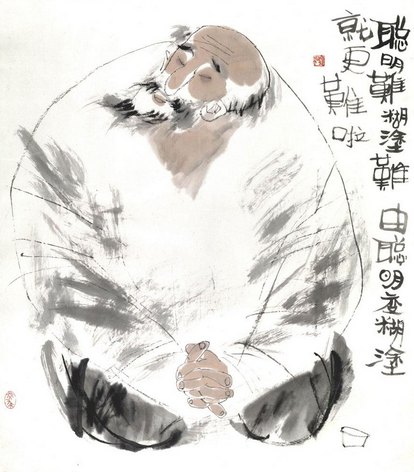 聪明難糊塗難 由聪明变糊塗
就更難啦